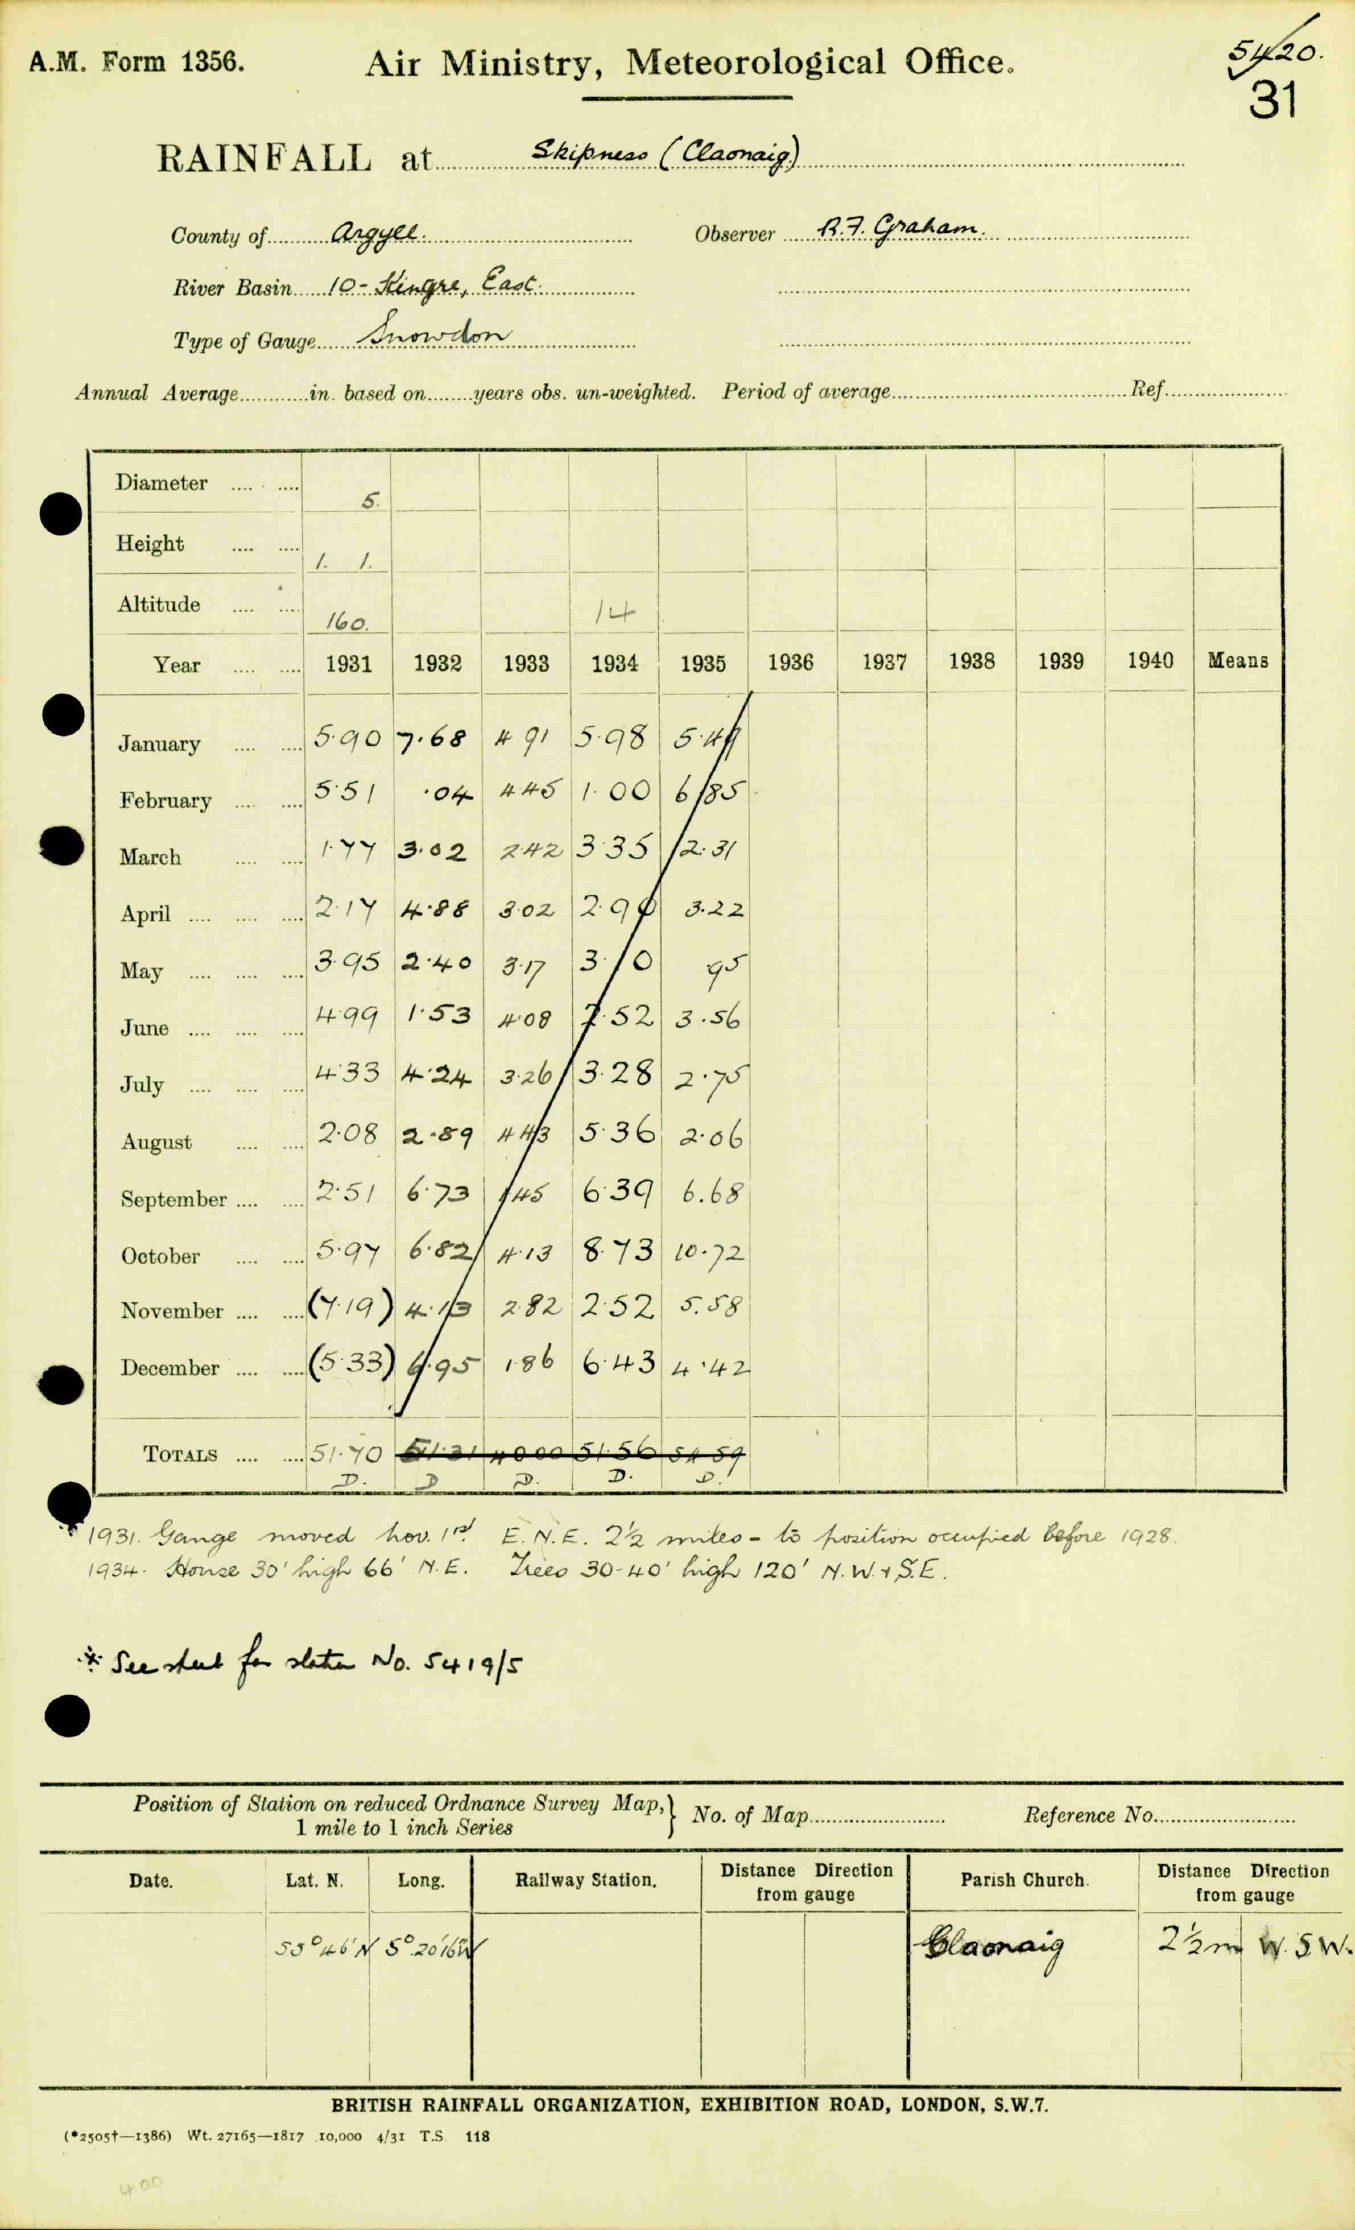 A.M. Form 1356.
Air Ministry, Meteorological Office.
5420.
31
RAINFALL at Skipness (Claonaig)
County of Argyll. Observer R.F. Graham.
River Basin 10 - Kingre, East.
Type of Gauge Snowdon
Annual Average in. based on years obs. un-weighted. Period of average Ref.
Diameter 5.
Height 1. 1.
Altitude 160. 14
Year 1931 1932 1933 1934 1935 1936 1937 1938 1939 1940 Means
January 5.90 7.68 4.91 5.98 5.49
February 5.51 .04 4.45 1.00 6.85
March 1.77 3.02 2.42 3.35 2.31
April 2.17 4.88 3.02 2.90 3.22
May 3.95 2.40 3.17 3.10 .95
June 4.99 1.53 4.08 2.52 3.56
July 4.33 4.24 3.26 3.28 2.75
August 2.08 2.89 4.43 5.36 2.06
September 2.51 6.73 1.45 6.39 6.68
October 5.97 6.82 4.13 8.73 10.72
November (7.19) 4.13 2.82 2.52 5.58
December (5.33) 6.95 1.86 6.43 4.42
TOTALS 51.70 51.31 40.00 51.56 54.59
D. D D. D. D.
* 1931. Gauge moved Nov. 1st E.N.E. 2½ miles - to position occupied before 1928.
1934. House 30' high 66' N.E. Trees 30-40' high 120' N.W. + S.E.
* See sheet for station No. 5419/5
Position of Station on reduced Ordnance Survey Map, } No. of Map Reference No.
1 mile to 1 inch Series
Date. Lat. N. Long. Railway Station. Distance Direction from gauge Parish Church. Distance Direction from gauge
55° 46' N 5° 20' 16" W Claonaig 2½ m W.S.W.
BRITISH RAINFALL ORGANIZATION, EXHIBITION ROAD, LONDON, S.W.7.
(*2505†—1386) Wt. 27165—1817 10,000 4/31 T.S. 118
400